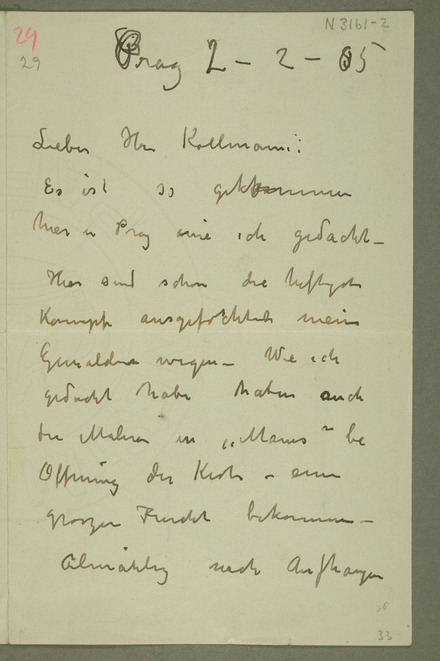 29
29
N 3161-2
Prag 2 - 2 - 05
Lieber Herr Kollmann!:
Es ist so gekommen
hier in Prag wie ich gedacht –
Hier sind schon die heftigste
Kämpfe ausgefochtet meine
Gemälden wegen – Wie ich
gedacht habe haben auch
die Malern in „Manes" be
Öffnung der Kiste – einen
groszen Furcht bekommen –
Almählig nach Aufhangen
33